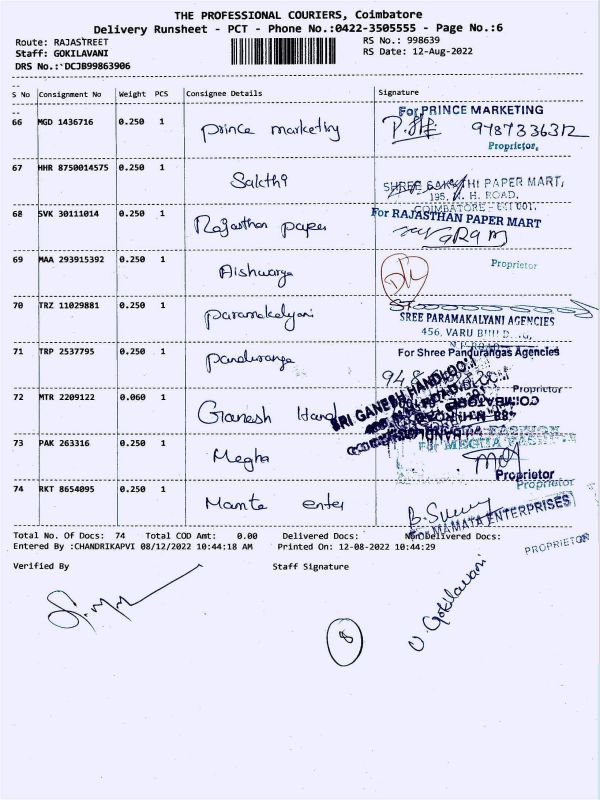 THE PROFESSIONAL COURIERS, Coimbatore
Delivery Runsheet - PCT - Phone No.:0422-3505555 - Page No.:6
Route: RAJASTREET RS No.: 998639
Staff: GOKILAVANI RS Date: 12-Aug-2022
DRS No.: DCJB99863906
S No Consignment No Weight PCS Consignee Details Signature
For PRINCE MARKETING
66 MGD 1436716 0.250 1 Prince marketing 9787336312
Proprietor.
67 HHR 8750014575 0.250 1 Sakthi
SHREE SAKTHI PAPER MART,
195, N. H. ROAD,
COIMBATORE - 641 001.
68 SVK 30111014 0.250 1 Rajasthan paper For RAJASTHAN PAPER MART
Proprietor
69 MAA 293915392 0.250 1 Aishwarya
70 TRZ 11029881 0.250 1 Paramakalyani
SREE PARAMAKALYANI AGENCIES
456, VARU
71 TRP 2537795 0.250 1 Panduranga For Shree Pandurangas Agencies
948
Proprietor
72 MTR 2209122 0.060 1 Ganesh Hand SRI GANESH HANDLOOM
73 PAK 263316 0.250 1 Megha For MEGHA FASHION
Proprietor
Proprietor
74 RKT 8654095 0.250 1 Mamta enter
For MAMATA ENTERPRISES
PROPRIETOR
Total No. Of Docs: 74 Total COD Amt: 0.00 Delivered Docs: NonDelivered Docs:
Entered By :CHANDRIKAPVI 08/12/2022 10:44:18 AM Printed On: 12-08-2022 10:44:29
Verified By Staff Signature
8
V. Gokilavani